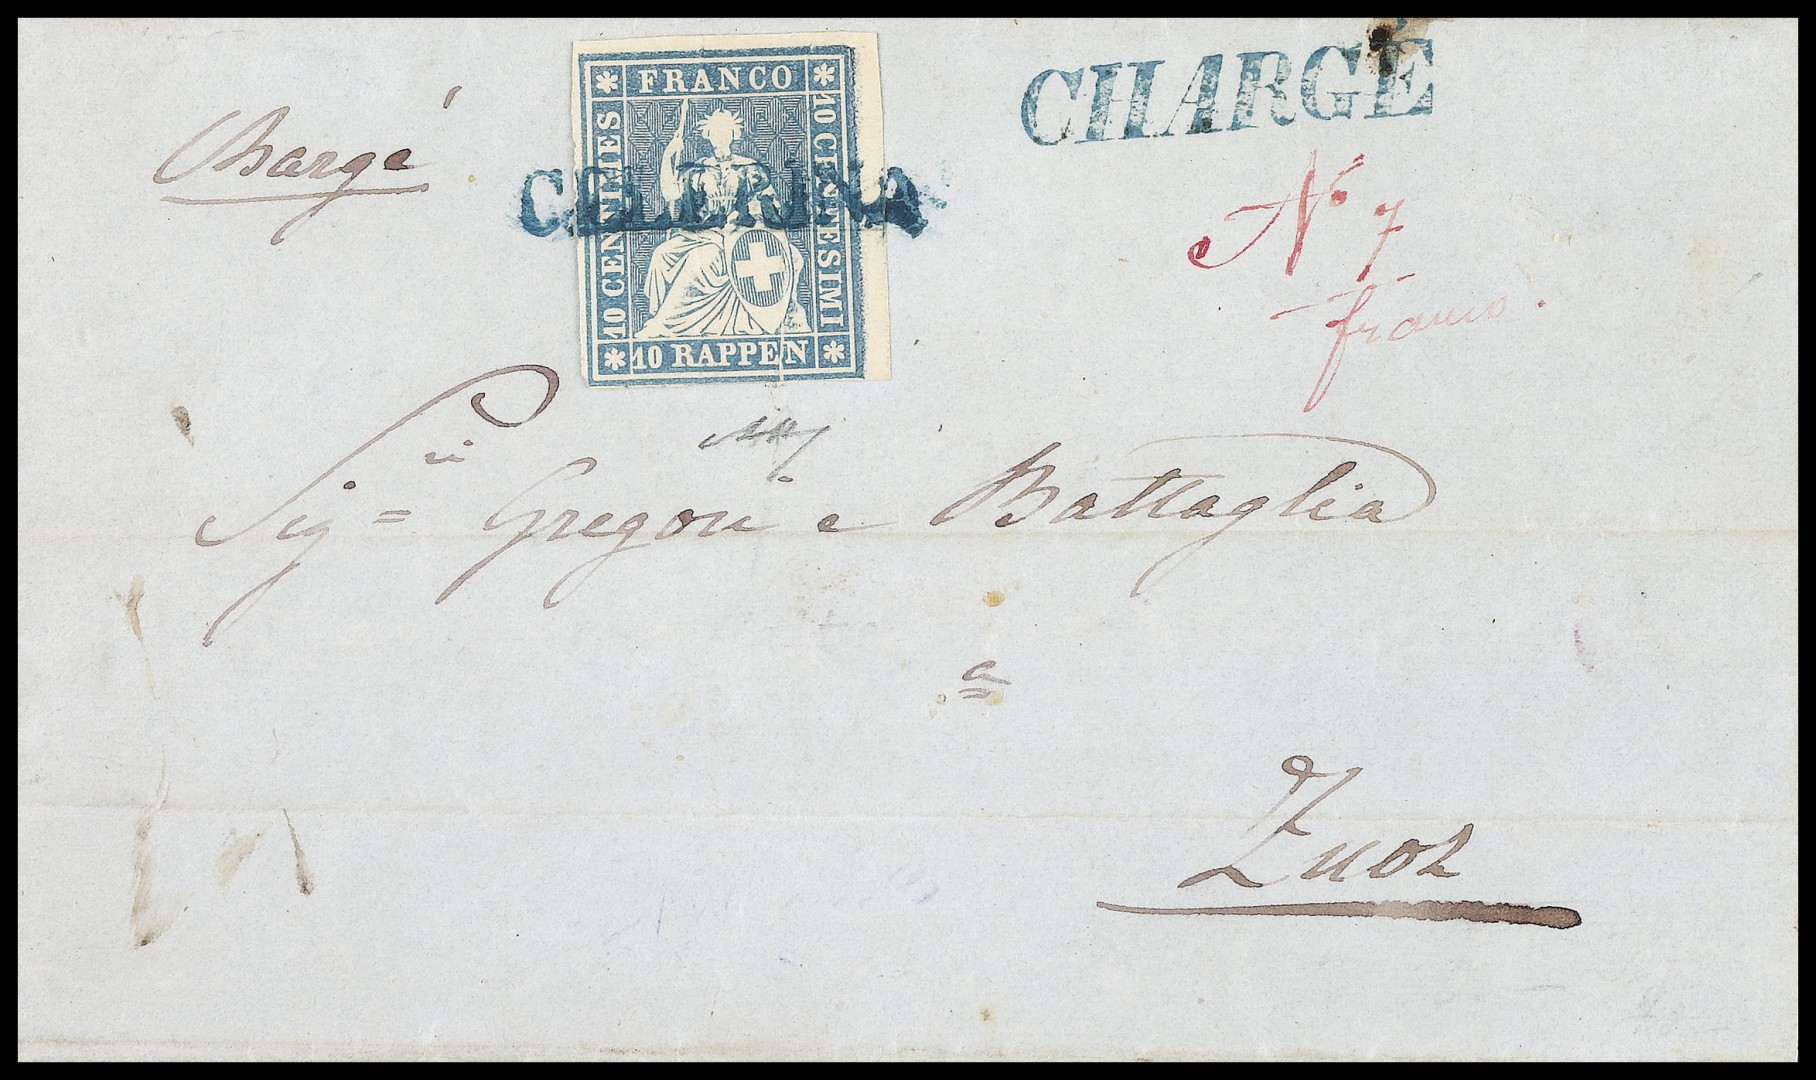 FRANCO
10 CENTIMES
10 CENTESIMI
10 RAPPEN
CELERINA
CHARGÉ
Chargé
No 7
franco.
Sigri Gregori e Battaglia
a
Zuoz